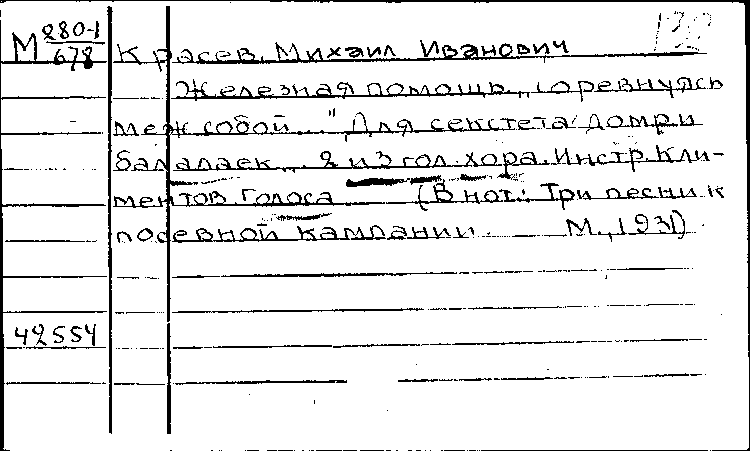 М 280-1/678 Красев, Михаил Иванович
Железная помощь. "Соревнуясь
меж собой..." Для секстета домр и
балалаек... 2 из гол. хора. Инстр. Кли-
ментов. Голоса (В нот.: Три песни к
посевной кампании. М., 1931)
42554